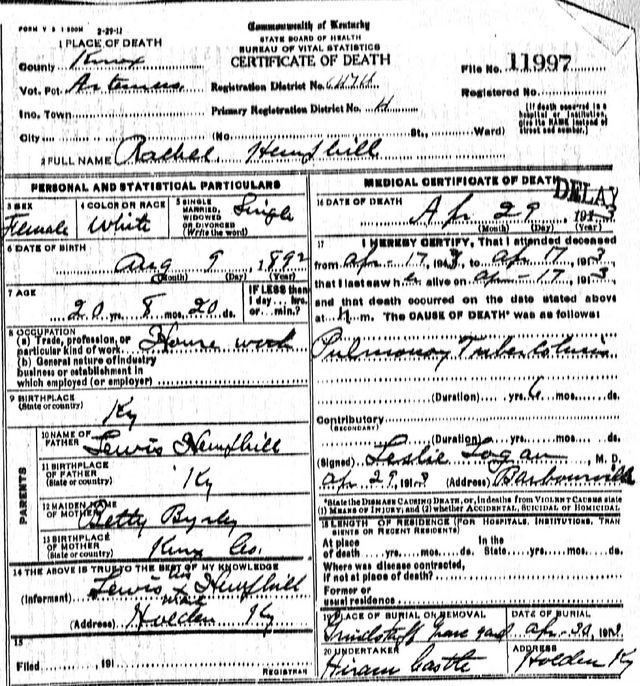 FORM V S 1 2-29-12
Commonwealth of Kentucky
STATE BOARD OF HEALTH
BUREAU OF VITAL STATISTICS
CERTIFICATE OF DEATH
1 PLACE OF DEATH
County Knox
Vot. Pct. Artemus
Ino. Town
City
Registration District No.
Primary Registration District No.
(No. St., Ward)
File No. 11997
Registered No.
[If death occurred in a
hospital or institution,
give its NAME instead of
street and number.]
2 FULL NAME Rachel Hemphill
PERSONAL AND STATISTICAL PARTICULARS
3 SEX
Female
4 COLOR OR RACE
White
5 SINGLE
MARRIED,
WIDOWED
OR DIVORCED
(Write the word)
Single
6 DATE OF BIRTH
Aug 9 1892
(Month) (Day) (Year)
7 AGE
20 yrs. 8 mos. 20 ds.
IF LESS than
1 day hrs.
or min.?
8 OCCUPATION
(a) Trade, profession, or
particular kind of work House work
(b) General nature of industry
business or establishment in
which employed (or employer)
9 BIRTHPLACE
(State or country)
Ky
PARENTS
10 NAME OF
FATHER Lewis Hemphill
11 BIRTHPLACE
OF FATHER
(State or country) Ky
12 MAIDEN NAME
OF MOTHER Betty Byrley
13 BIRTHPLACE
OF MOTHER
(State or country) Knox Co.
14 THE ABOVE IS TRUE TO THE BEST OF MY KNOWLEDGE
(Informant) Lewis his x mark Hemphill
(Address) Holden Ky
15
Filed , 191
REGISTRAR
MEDICAL CERTIFICATE OF DEATH
DELAY
16 DATE OF DEATH
Apr 29, 1913
(Month) (Day) (Year)
17
I HEREBY CERTIFY, That I attended deceased
from Apr-17, 1913, to Apr 17, 1913
that I last saw her alive on Apr-17, 1913
and that death occurred on the date stated above
at m. The CAUSE OF DEATH* was as follows:
Pulmonary Tuberculosis
(Duration) yrs. 6 mos. ds.
Contributory
(SECONDARY)
(Duration) yrs. mos. ds.
(Signed) Leslie Logan, M. D.
Apr. 29, 1913 (Address) Barbourville
*State the DISEASE CAUSING DEATH, or, in deaths from VIOLENT CAUSES state
(1) MEANS OF INJURY; and (2) whether ACCIDENTAL, SUICIDAL or HOMICIDAL
18 LENGTH OF RESIDENCE (FOR HOSPITALS, INSTITUTIONS, TRAN
SIENTS OR RECENT RESIDENTS)
At place In the
of death yrs. mos. ds. State, yrs. mos. ds.
Where was disease contracted,
if not at place of death?
Former or
usual residence
19 PLACE OF BURIAL OR REMOVAL
Grindstaff yard
DATE OF BURIAL
Apr-30, 1913
20 UNDERTAKER
Hiram Castle
ADDRESS
Holden Ky